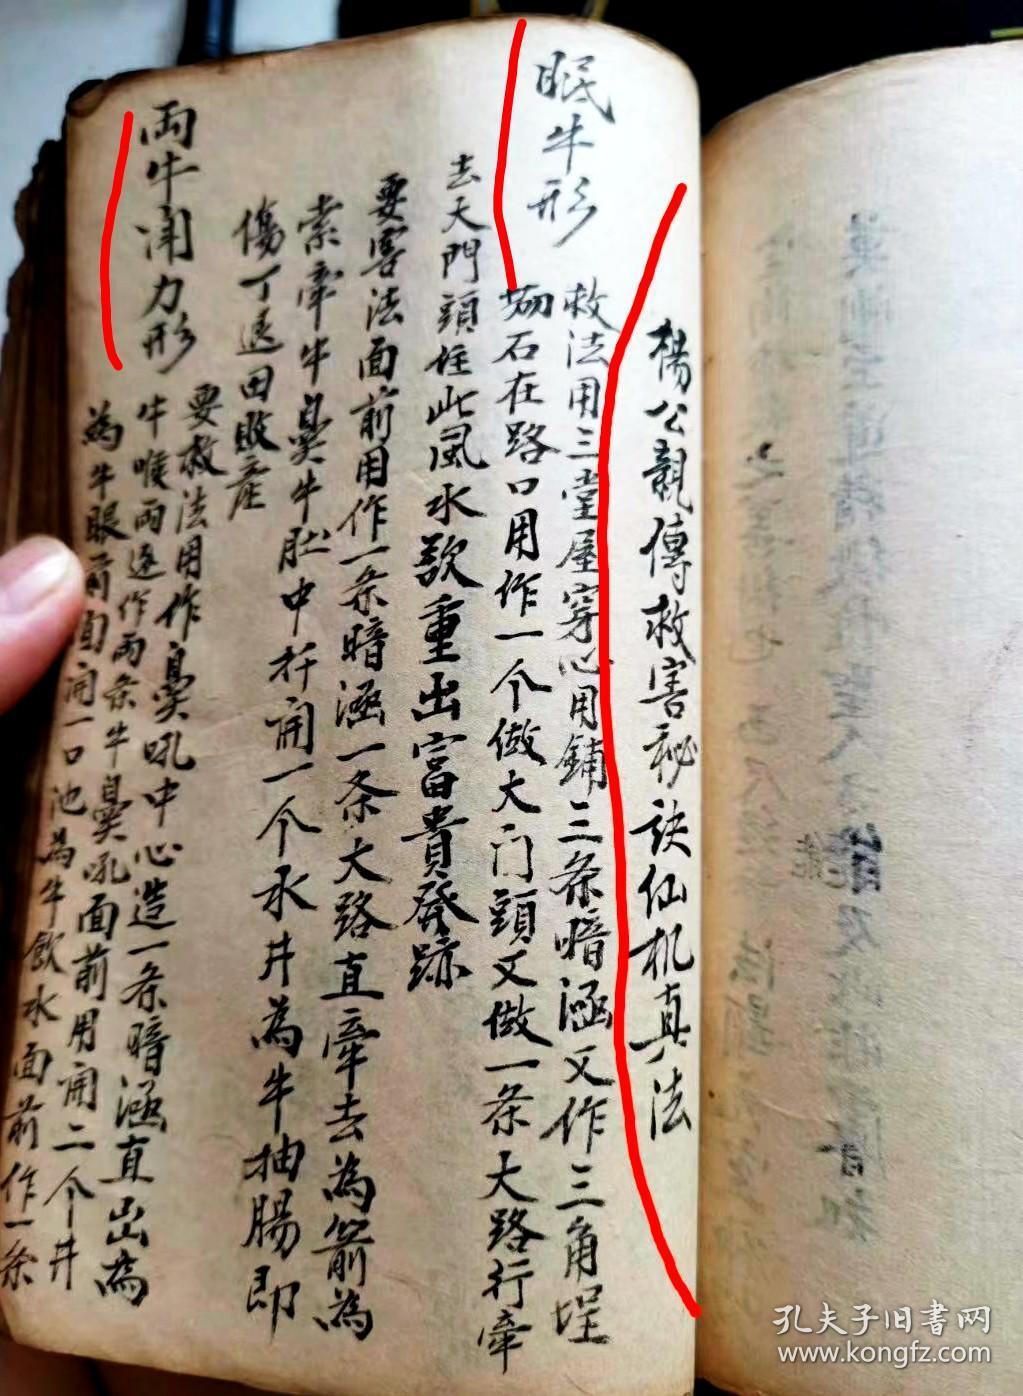 楊公親傳救害秘訣仙机真法
眠牛形
救法用三堂屋穿心用鋪三条暗涵又作三角埕
石在路口用作一个做大门頭又做一条大路行牽
去天門頭住此風水欵重出富貴發跡
要害法面前用作一条暗涵一条大路直牽去為箭為
索牽牛鼻牛肚中扦開一个水井為牛抽腸即
傷丁退田敗産
両牛鬥力形
要救法用作鼻吼中心造一条暗涵直出為
牛喉両邊作両条牛鼻吼面前用開二个井
為牛眼前面開一口池為牛飲水面前作一条
孔夫子旧书网
www.kongfz.com